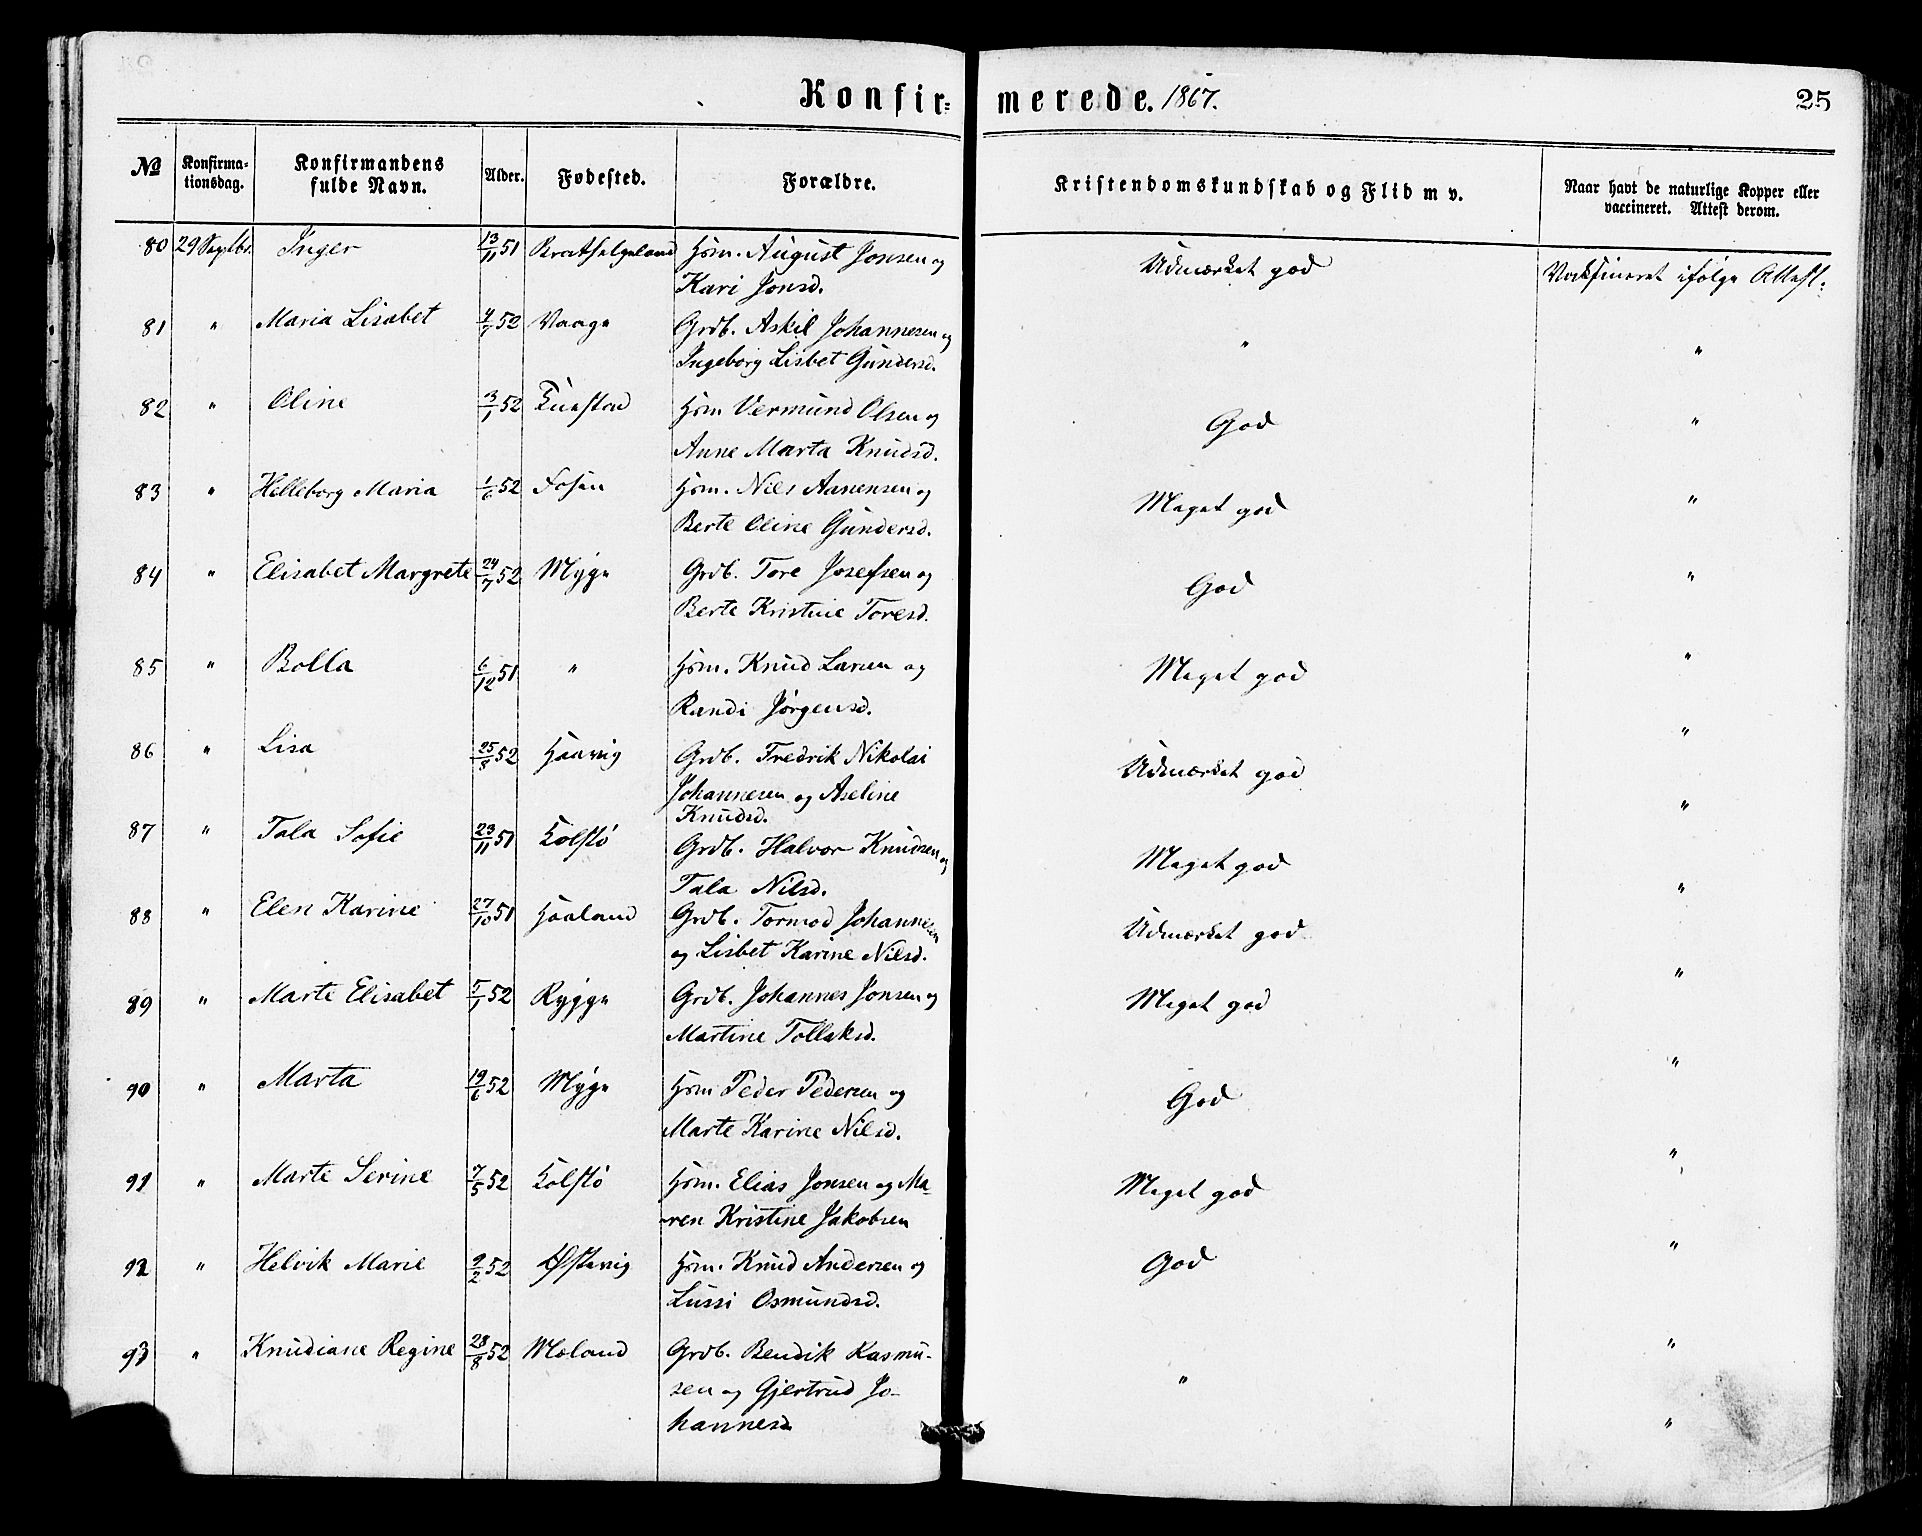 Konfir= merede. 1867. 25
№ Konfirma= tionsdag. Konfirmandens fulde Navn. Alder. Fødested. Forældre. Kristendomskundskab og Flid m v. Naar havt de naturlige Kopper eller vaccineret. Attest derom.
80 29 Septbr. Inger 13/11 51 Hsm. August Jonsen og Udmærket god Vaksineret ifølge Attest.
Kari Jonsd.
81 " Maria Lisabet 52 Vaage Grdb. Askil Johannesen og " "
Ingeborg Lisbet Gundersd.
82 " Oline 3/1 52 Hsm Vermund Olsen og God "
Anne Marta Knudsd.
83 " Helleborg Maria 1/6 52 Fosen Hsm. Nils Aanensen og Meget god "
Berte Oline Gundersd.
84 " Elisabet Margrete 24/7 52 Myge Grdb. Tore Josefsen og God "
Berte Kristine Toresd.
85 " Bolla 6/12 51 " Hsm. Knud Larsen og Meget god "
Randi Jørgensd.
86 " Lisa 25/8 52 Haavig Grdb. Fredrik Nikolai Udmærket god "
Johannesen og Aseline
Knudsd.
87 " Tala Sofie 23/11 51 Kolstø Grdb. Halvor Knudsen og Meget god "
Tala Nilsd.
88 " Elen Karine 27/10 51 Haaland Grdb. Tormod Johannesen Udmærket god "
og Lisbet Karine Nilsd.
89 " Marte Elisabet 5/1 52 Rygge Grdb. Johannes Jonsen og Meget god "
Martine Tollaksd.
90 " Marta 19/6 52 Myge Hsm Peder Pedersen og God "
Marte Karine Nilsd.
91 " Marte Serine 7/5 52 Kolstø Hsm. Elias Jonsen og Ma- Meget god "
ren Kristine Jakobsen
92 " Helvik Marie 9/2 52 Østevig Hsm. Knud Andersen og God "
Lussi Osmundsd.
93 " Knudiane Regine 28/8 52 Moland Grdb. Bendik Rasmu- " "
sen og Gjertrud Jo-
hannesd. "